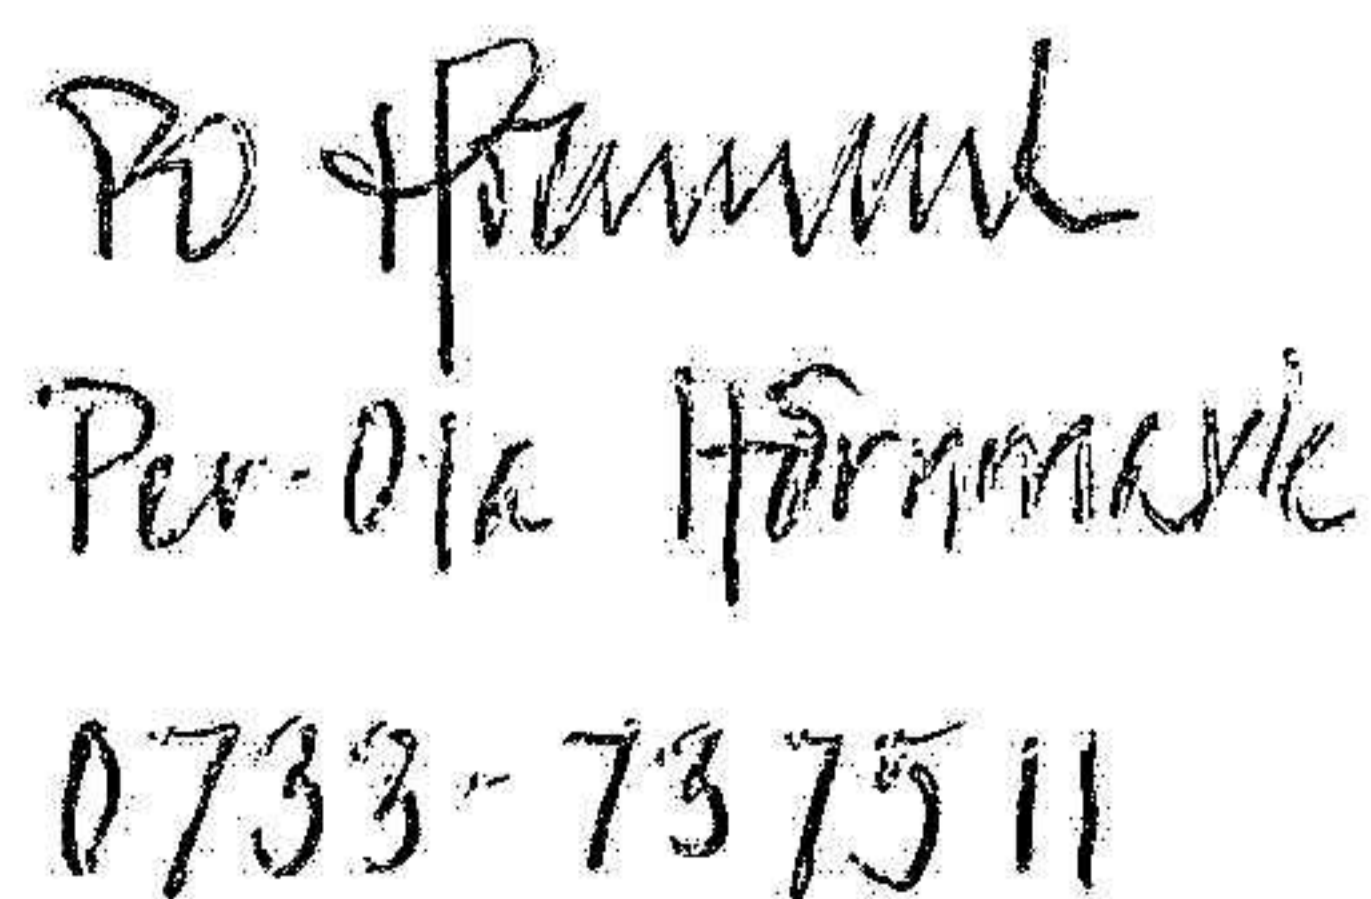 PO Hörnmark
Per-Ola Hörnmark
0733-73 75 11